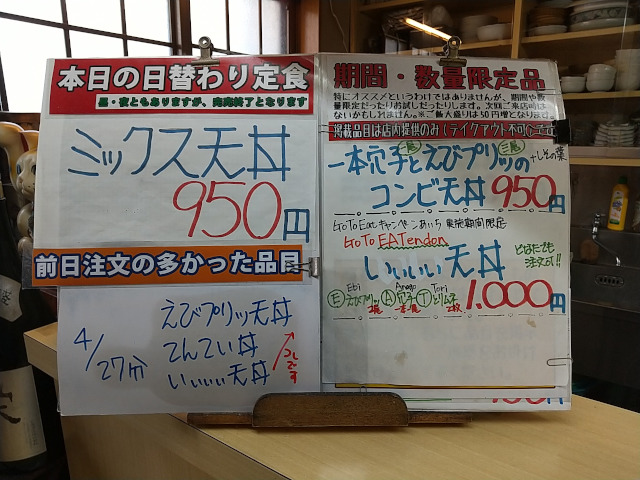 本日の日替わり定食
昼・夜ともありますが、完売終了となります
ミックス天丼
950円
前日注文の多かった品目
4/27分
えびプリッ天丼
てんてい丼
いぃぃぃ天丼
つでです
期間・数量限定品
特にオススメというわけではありませんが、期間や数
量限定だったりお試しだったりします。次回ご来店時は
ないかもしれません。※ご飯大盛りは50円増となります。
掲載品目は店内提供のみ(テイクアウト不可)です
一本穴子とえびプリッの
+しその葉
コンビ天丼 950円
Go To Eat キャンペーンあいち 東海期間限定
Go To EATendon
いぃぃぃ天丼
どなたでも
注文可!!
Ebi Anago Tori
Ⓔえびプリッ Ⓐ穴子 Ⓣとりムネ
2尾 一本 2枚
1.000円
円